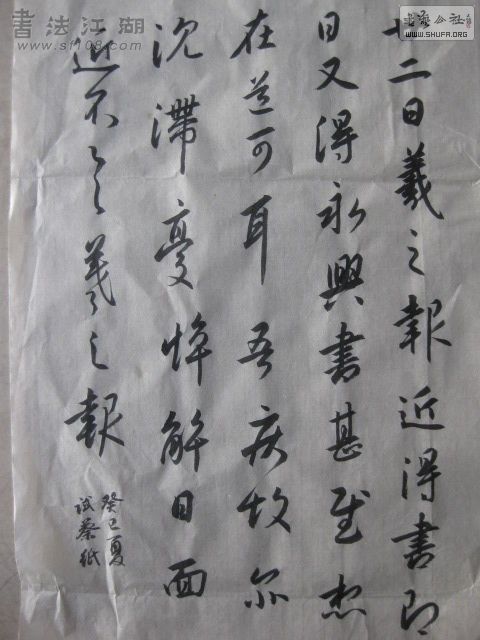 書法江湖
www.sf108.com
www.SHUFA.ORG
十二日羲之報近得書即
日又得永興書甚慰想
在道可耳吾疾故尔
沈滯憂悴解日面
近不一一羲之報
癸巳夏
试蔡纸